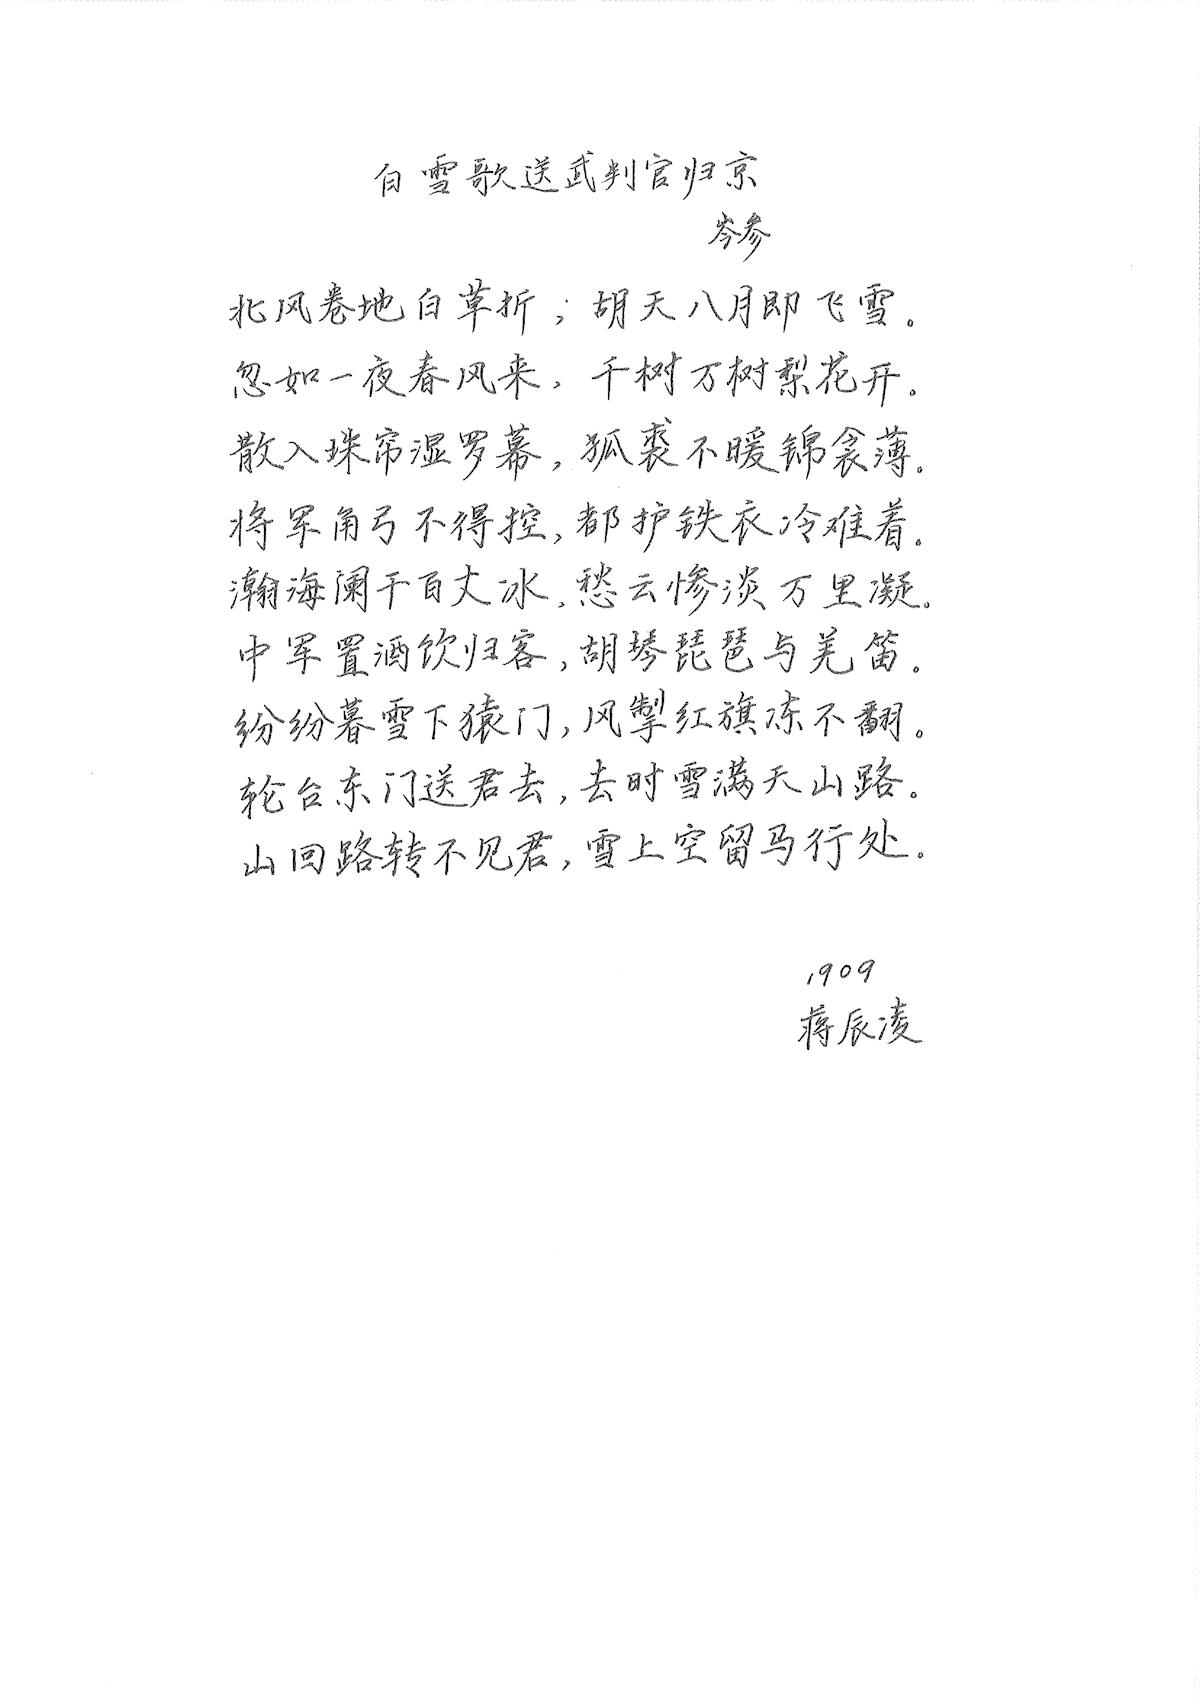 白雪歌送武判官归京
岑参
北风卷地白草折；胡天八月即飞雪。
忽如一夜春风来，千树万树梨花开。
散入珠帘湿罗幕，狐裘不暖锦衾薄。
将军角弓不得控，都护铁衣冷难着。
瀚海阑干百丈冰，愁云惨淡万里凝。
中军置酒饮归客，胡琴琵琶与羌笛。
纷纷暮雪下猿门，风掣红旗冻不翻。
轮台东门送君去，去时雪满天山路。
山回路转不见君，雪上空留马行处。
1909
蒋辰凌